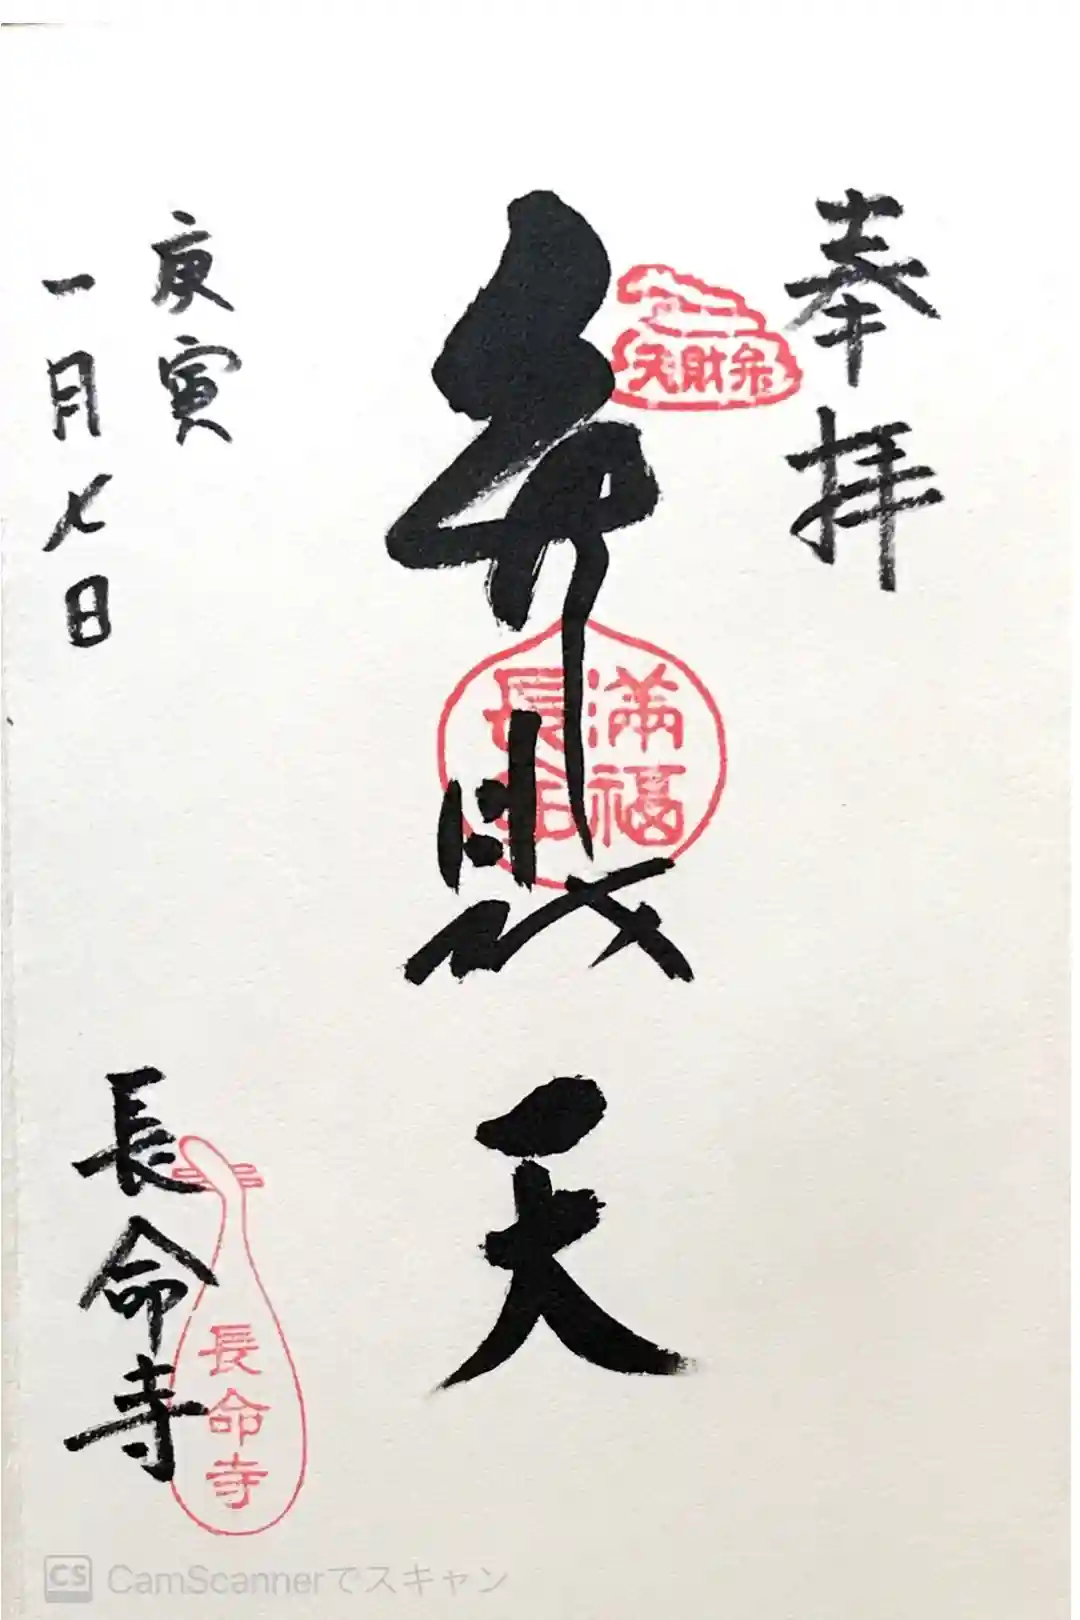 奉拝
弁財天
弁財天
満福
長命
庚寅
一月七日
長命寺
長命寺
CS CamScannerでスキャン